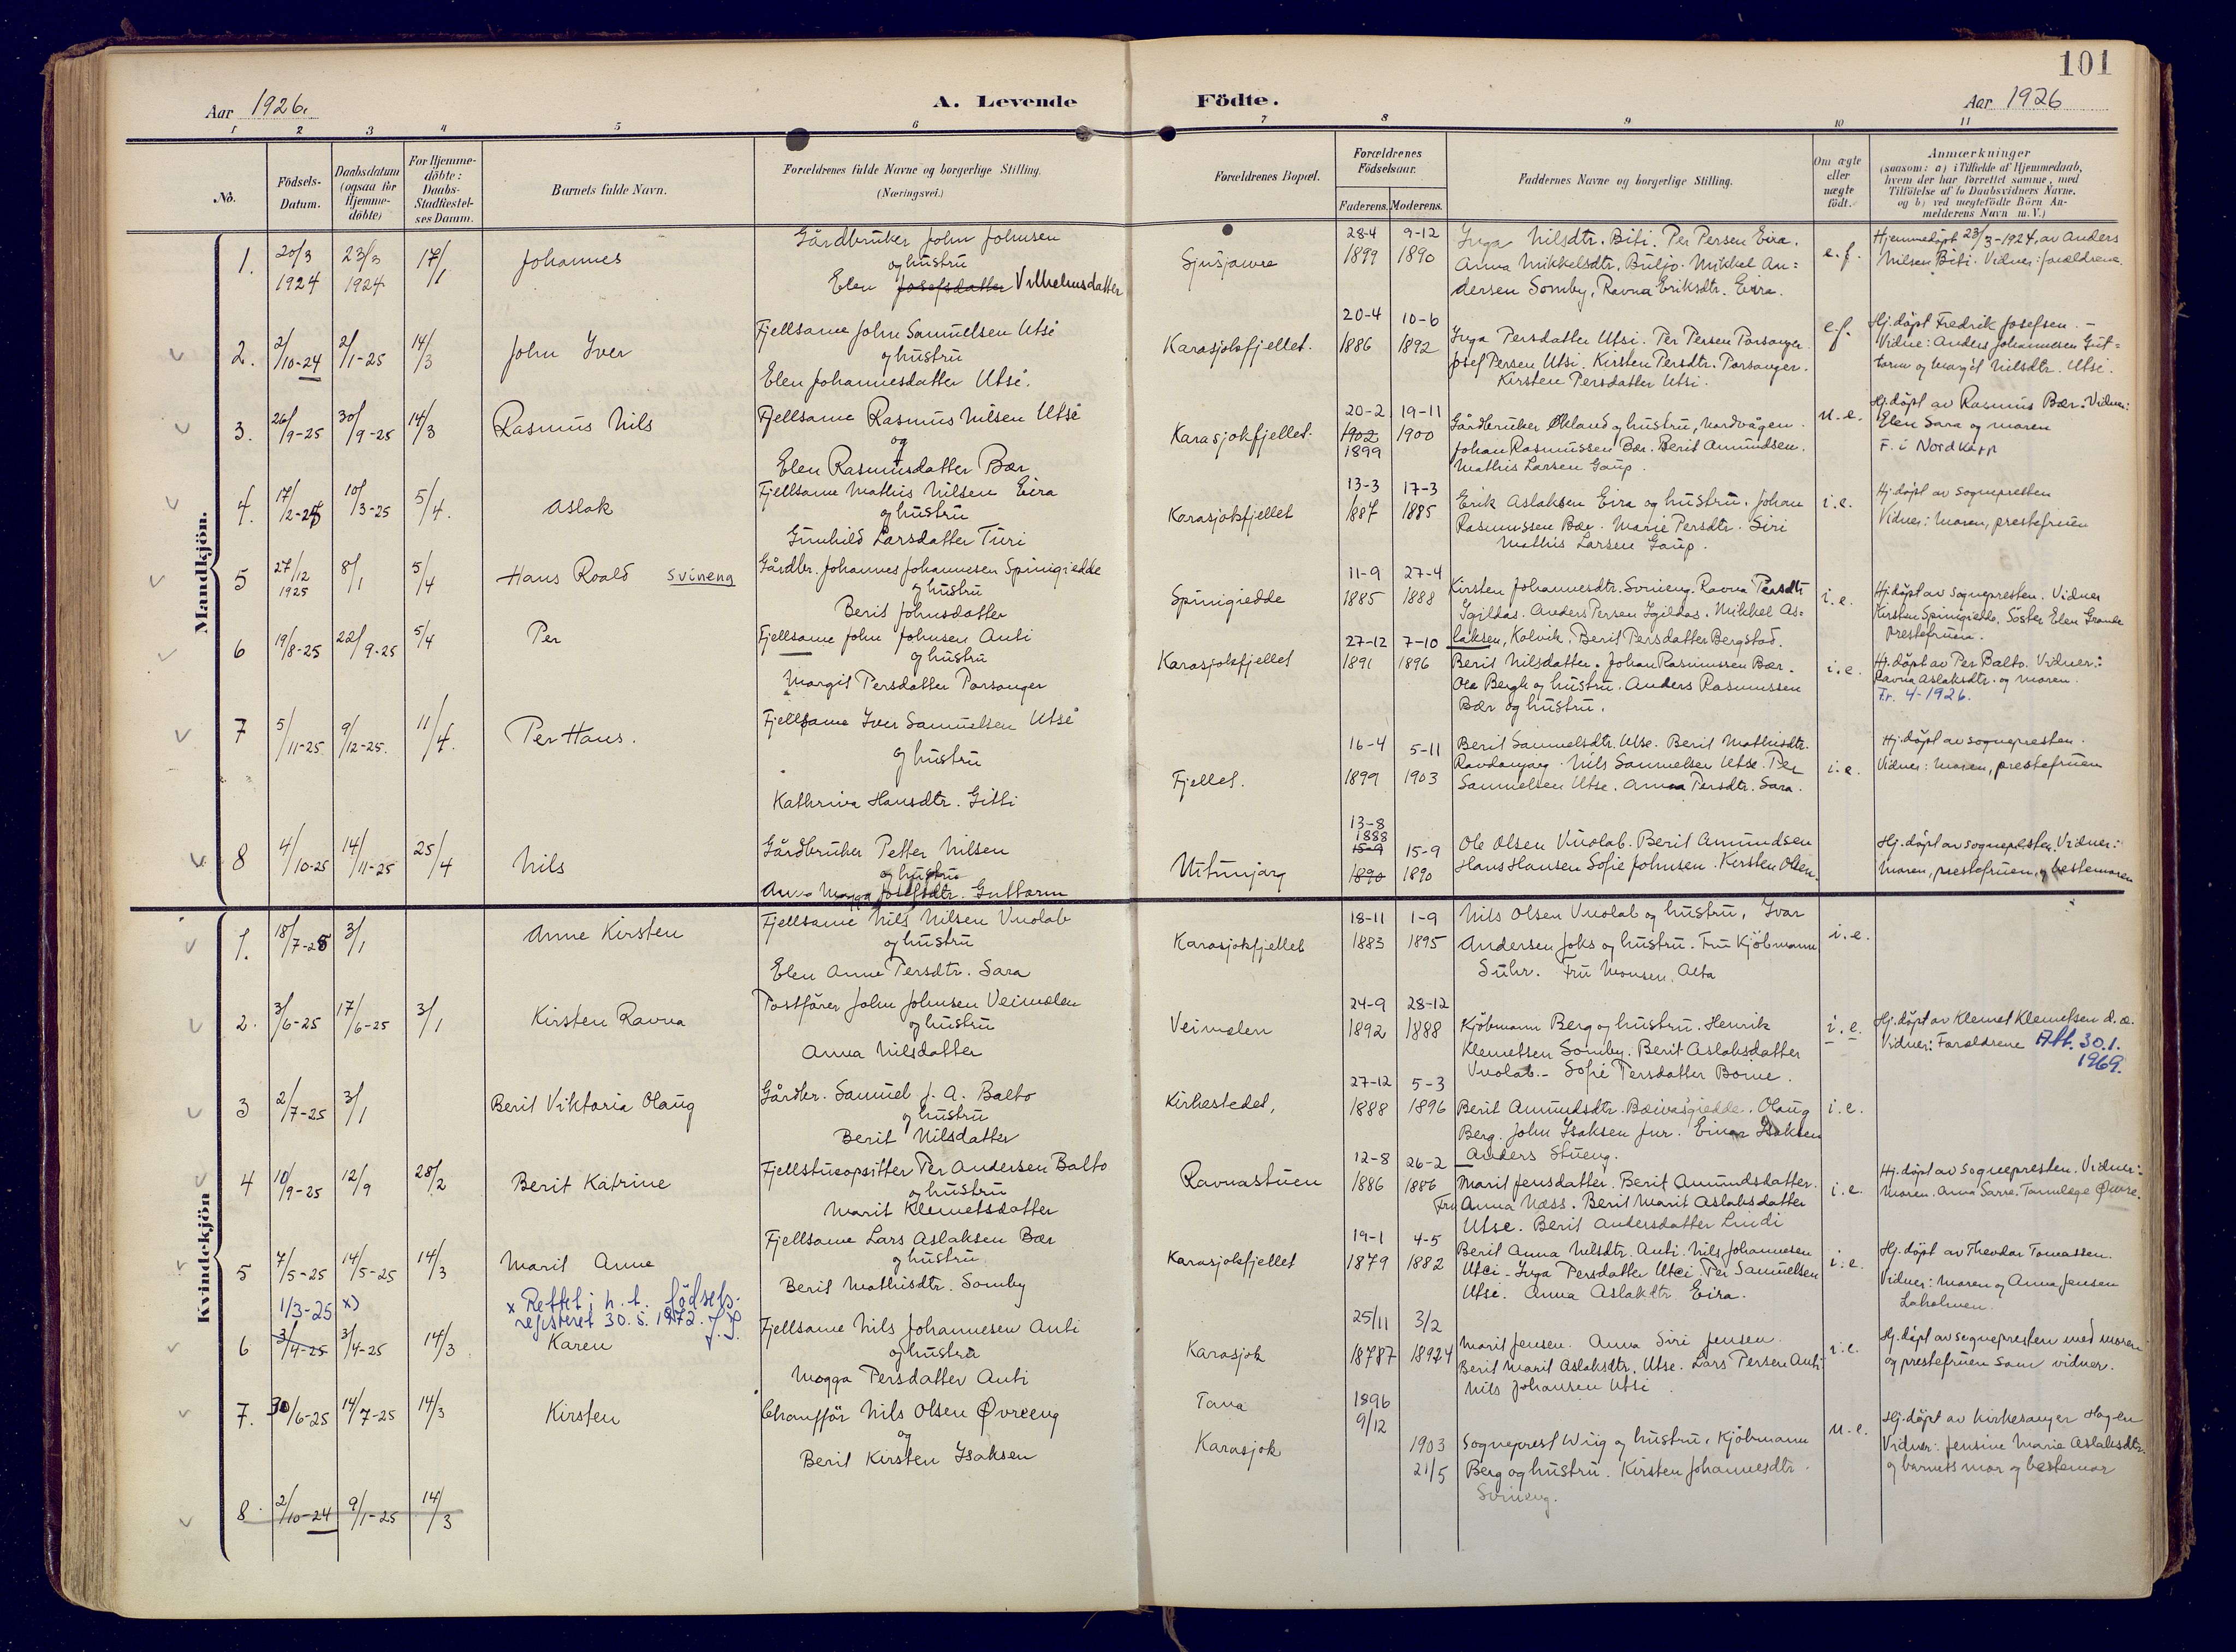 101
Aar 1926.
A. Levende Födte.
Aar 1926
1 2 3 4 5 6 7 8 9 10 11
No.
Födsels-
Datum.
Daabsdatum
(ogsaa for
Hjemme-
döbte)
For Hjemme-
döbte:
Daabs-
Stadfæstel-
ses Datum.
Barnets fulde Navn.
Forældrenes fulde Navne og borgerlige Stilling.
(Næringsvei.)
Forældrenes Bopæl.
Forældrenes
Födselsaar.
Faderens. Moderens.
Faddernes Navne og borgerlige Stilling.
Om ægte
eller
uægte
födt.
Anmærkninger
(saasom: a) i Tilfælde af Hjemmedaab,
hvem der har forrettet samme, med
Tilföielse af to Daabsvidners Navne,
og b) ved uægtefödte Börn An-
melderens Navn m. V.)
Mandkjön.
1. 20/3 1924 23/3 1924 17/1
Johannes
Gårdbruker John Johnsen
og hustru
Elen Josefsdatter Vilhelmsdatter
Sjusjavre
28-4 9-12
1899 1890
Inga Nilsdtr. Biti. Per Persen Eira.
Anna Mikkelsdtr. Buljo. Mikkel An=
dersen Somby, Ravna Eriksdtr. Eira.
e.f.
Hjemmedöpt 23/3-1924, av Anders
Nilsen Biti. Vidner: forældrene.
2. 2/10-24 2/1-25 14/3
John Iver
Fjellsame John Samuelsen Utsi
og hustru
Elen Johannesdatter Utsi.
Karasjokfjellet.
20-4 10-6
1886 1892
Inga Persdatter Utsi. Per Persen Porsanger.
Josef Persen Utsi. Kirsten Persdtr. Porsanger.
Kirsten Persdatter Utsi.
e.f.
Hj.döpt Fredrik Josefsen. -
Vidne: Anders Johannesen Gut=
torm og Margit Nilsdtr. Utsi.
3. 26/9-25 30/9-25 14/3
Rasmus Nils
Fjellsame Rasmus Nilsen Utsi
og
Elen Rasmusdatter Bær
Karasjokfjellet.
20-2 19-11
1902 1900
1899
Gårdbruker Økland og hustru, Nordvågen.
Johan Rasmussen Bær. Berit Amundsen.
Mathis Larsen Gaup.
u.e.
Hj.döpt av Rasmus Bær. Vidner:
Elen Sara og moren
F. i Nordkapp
4. 17/2-25 10/3-25 5/4.
Aslak
Fjellsame Mathis Nilsen Eira
og hustru
Gunhild Larsdatter Turi
Karasjokfjellet
13-3 17-3
1887 1885
Erik Aslaksen Eira og hustru. Johan
Rasmussen Bær. Marie Persdtr. Siri
Mathis Larsen Gaup.
i.e.
Hj.döpt av sognepresten
Vidner: Moren, prestefruen
5 27/12 1925 8/1 5/4
Hans Roald Svineng
Gårdbr. Johannes Johannesen Spinigiedde
og hustru
Berit Johnsdatter
Spinigiedde
11-9 27-4
1885 1888
Kirsten Johannesdtr. Svineng. Ravna Persdtr
Igildas. Anders Persen Igildas. Mikkel As=
laksen, Kolvik. Berit Persdatter Bergstad.
i.e.
Hj.döpt av sognepresten. Vidner
Kirsten Spinigiedde. Söster Elen
prestefruen.
6 19/8-25 22/9-25 5/4
Per
Fjellsame John Johnsen Anti
og hustru
Margit Persdatter Porsanger
Karasjokfjellet
27-12 7-10
1891 1896
Berit Nilsdatter. Johan Rasmussen Bær.
Ole Bergh og hustru. Anders Rasmussen
Bær og hustru.
i.e.
Hj.döpt av Per Balto. Vidner:
Ravna Aslaksdtr. og moren.
Fr. 4-1926.
7 5/11-25 9/12-25. 11/4.
Per Hans.
Fjellsame Iver Samuelsen Utsi
og hustru
Kathrina Hansdtr. Gitti
Fjellet.
16-4 5-11
1899 1903
Berit Samuelsdtr. Utse. Berit Mathisdtr.
Ravdanjarg. Nils Samuelsen Utse. Per
Samuelsen Utse. Anna Persdtr. Sara.
i.e.
Hj.döpt av sognepresten.
Vidner: Moren, prestefruen
8 4/10-25 14/11-25 25/4
Nils
Gårdbruker Petter Nilsen
og hustru
Anna Magga Josefsdtr. Guttorm
Nitunjarg
13-8
1888
15-9 15-9
1890 1890
Ole Olsen Vuolab. Berit Amundsen
Hans Hansen Sofie Johnsen. Kirsten Olsen.
Hj.döpt av sognepresten. Vidner:
Moren, prestefruen, og bestemoren
Kvindekjön
1. 18/7-25 3/1
Anne Kirsten
Fjellsame Nils Nilsen Vuolab
og hustru
Elen Anne Persdtr. Sara
Karasjokfjellet
18-11 1-9
1883 1895
Nils Olsen Vuolab og hustru, Ivar
Andersen Joks og hustru. Fru Kjöbmann
Suhr. Fru Monsen, Alta
i.e.
2. 3/6-25 17/6-25 3/1
Kirsten Ravna
Postförer John Johnsen Veimolen
og hustru
Anna Nilsdatter
Veimolen
24-9 28-12
1892 1888
Kjöbmann Berg og hustru. Henrik
Klemetsen Somby. Berit Aslaksdatter
Vuolab.- Sofie Persdatter Boine.
i.e.
Hj.döpt av Klemet Klemetsen d.æ.
Vidner: Forældrene Att. 30.1.
1969.
3 2/7-25 3/1
Berit Viktoria Olaug
Gårdbr. Samuel J. A. Balto
og hustru
Berit Nilsdatter
Kirkestedet,
27-12 5-3
1888 1896
Berit Amundsdtr. Bæivasgiedde. Olaug
Berg. John Isaksen Jur. Einar Isaksen
Anders Stueng.
i.e.
4 10/9-25 12/9 28/2
Berit Katrine
Fjellstueopsitter Per Andersen Balto
og hustru
Marit Klemetsdatter
Ravnastuen
12-8 26-2
1886 1886
Marit Jensdatter. Berit Amundsdatter.
Fru Anna Næss. Berit Marit Aslaksdatter
Utse. Berit Andersdatter Lindi
i.e.
Hj.döpt av sognepresten. Vidner:
Moren. Anna Sarre. Tannlege Øwre.
5 7/5-25 14/5-25 14/3
Marit Anne
Fjellsame Lars Aslaksen Bær
og hustru
Berit Mathisdtr. Somby
Karasjokfjellet
19-1 4-5
1879 1882
Berit Anna Nilsdtr. Anti. Nils Johannesen
Utci - Inga Persdatter Utci Per Samuelsen
Utsi. Anna Aslakdtr Eira.
i.e.
Hj.döpt av Theodor Tomassen.
Vidner: Moren og Anna Jensen
Lakselven.
1/3-25 x)
x Rettet i h.t. födsels-
registeret 30.5.1972. J.J.
6 3/4-25 3/4-25 14/3
Karen
Fjellsame Nils Johannesen Anti
og hustru
Magga Persdatter Anti
Karasjok
25/11 3/2
18787 18924
Marit Jensen. Anna Siri Jensen.
Berit Marit Aslaksdtr. Utse. Lars Persen Anti
Nils Johansen Utsi
i.e.
Hj.döpt av sognepresten med moren
og prestefruen som vidner.
7. 30/6-25 14/7-25 14/3
Kirsten
Chaufför Nils Olsen Øvreeng
og
Berit Kirsten Isaksen
Tana
Karasjok
1896
9/12
1903
21/5
Sogneprest Wiig og hustru. Kjöbmann
Berg og hustru. Kirsten Johannesdtr.
Svineng.
u.e.
Hj.döpt av kirkesanger Hagen
Vidner: Jensine Marie Aslaksdtr.
og barnets mor og bestemor
8. 2/10-24 9/1-25 14/3